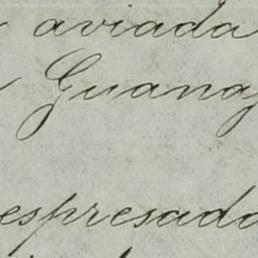 aviada
Guanaj
espresada